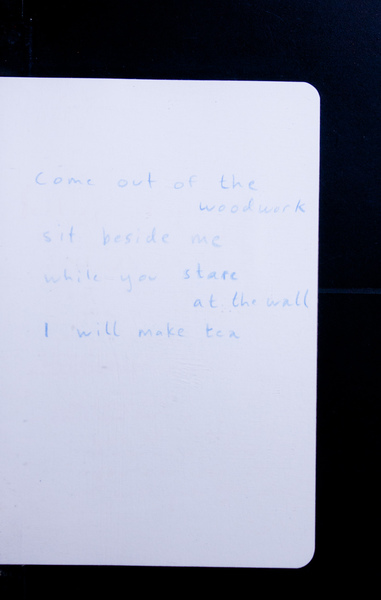 Come out of the
woodwork
sit beside me
while you stare
at the wall
I will make tea